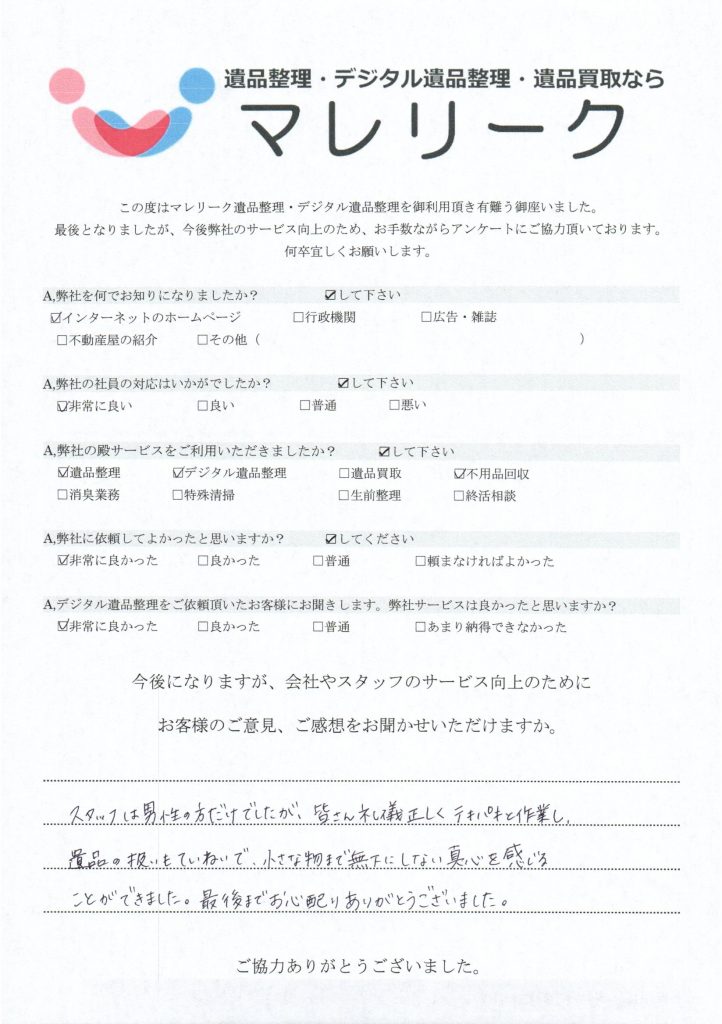 遺品整理・デジタル遺品整理・遺品買取なら
マレリーク
この度はマレリーク遺品整理・デジタル遺品整理を御利用頂き有難う御座いました。
最後となりましたが、今後弊社のサービス向上のため、お手数ながらアンケートにご協力頂いております。
何卒宜しくお願いします。
A,弊社を何でお知りになりましたか？ ☑して下さい
☑インターネットのホームページ □行政機関 □広告・雑誌
□不動産屋の紹介 □その他（ ）
A,弊社の社員の対応はいかがでしたか？ ☑して下さい
☑非常に良い □良い □普通 □悪い
A,弊社の殿サービスをご利用いただきましたか？ ☑して下さい
☑遺品整理 ☑デジタル遺品整理 □遺品買取 ☑不用品回収
□消臭業務 □特殊清掃 □生前整理 □終活相談
A,弊社に依頼してよかったと思いますか？ ☑してください
☑非常に良かった □良かった □普通 □頼まなければよかった
A,デジタル遺品整理をご依頼頂いたお客様にお聞きします。弊社サービスは良かったと思いますか？
☑非常に良かった □良かった □普通 □あまり納得できなかった
今後になりますが、会社やスタッフのサービス向上のために
お客様のご意見、ご感想をお聞かせいただけますか。
スタッフは男性の方だけでしたが、皆さん礼儀正しくテキパキと作業し、
遺品の扱いもていねいで、小さな物まで無下にしない真心を感じる
ことができました。最後までお心配りありがとうございました。
ご協力ありがとうございました。